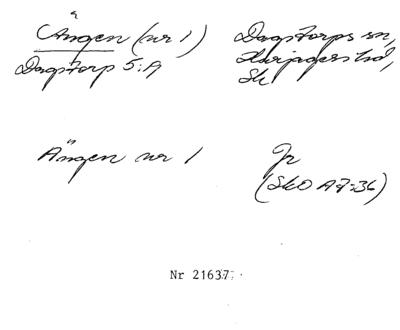 Ängen (nr 1) Dagstorps sn,
Dagstorp 5:9 Harjagers hd,
Sk
Ängen nr 1 Jr
(SkO A7:36)
Nr 21637